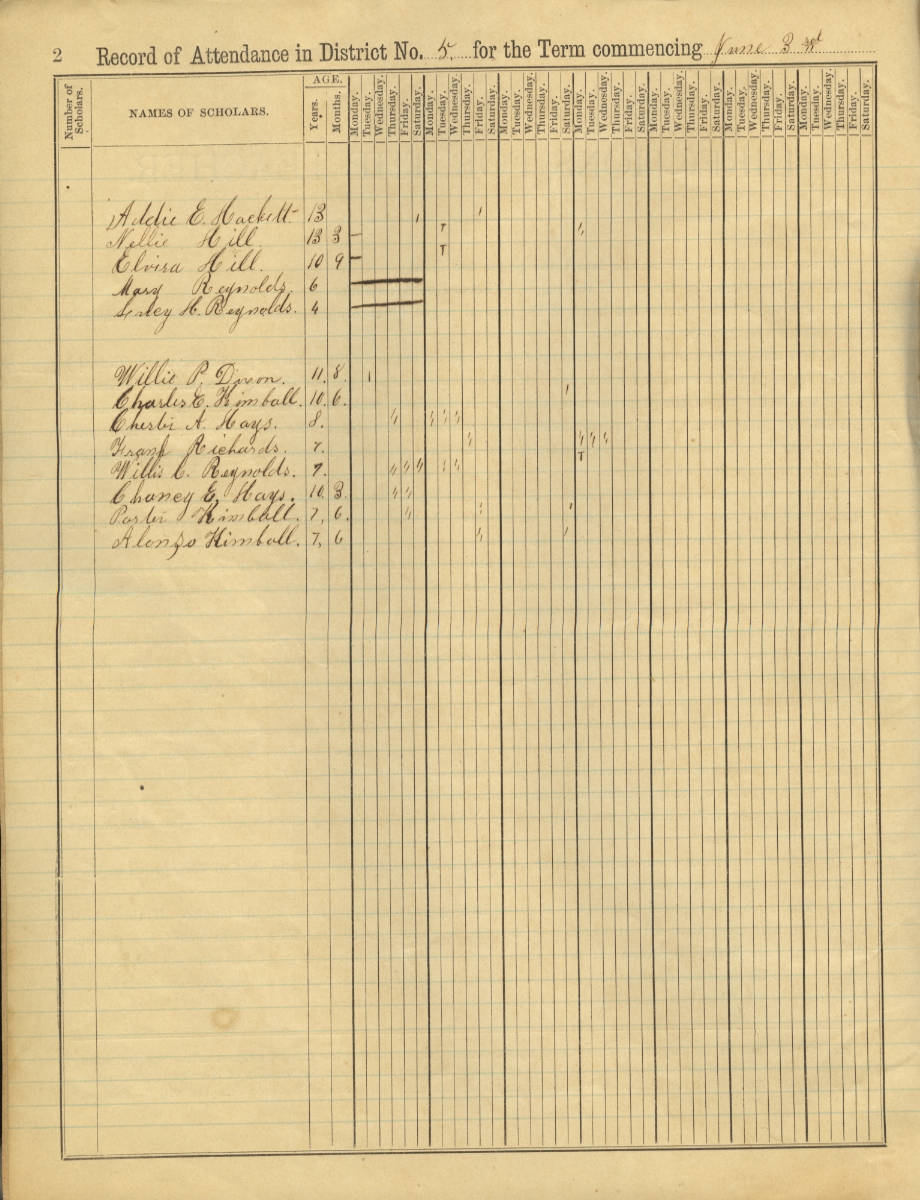 2 Record of Attendance in District No. 5. for the Term commencing June 3rd
Number of Scholars.
NAMES OF SCHOLARS.
AGE.
Years. Months.
Monday. Tuesday. Wednesday. Thursday. Friday. Saturday. Monday. Tuesday. Wednesday. Thursday. Friday. Saturday. Monday. Tuesday. Wednesday. Thursday. Friday. Saturday. Monday. Tuesday. Wednesday. Thursday. Friday. Saturday. Monday. Tuesday. Wednesday. Thursday. Friday. Saturday. Monday. Tuesday. Wednesday. Thursday. Friday. Saturday. Monday. Tuesday. Wednesday. Thursday. Friday. Saturday.
Addie E. Hackett 13
Nellie Hill. 13 3
Elvira Hill. 10 9
Mary Reynolds. 6
H. Reynolds. 4
Willie P. Dixon. 11. 8.
Charles E. Kimball. 10. 6.
Chester A. Hays. 8.
Frank Richards. 7.
Willis C. Reynolds. 7.
Chancy E. Hays. 10. 3.
Porter Kimball. 7, 6.
Alonzo Kimball. 7, 6